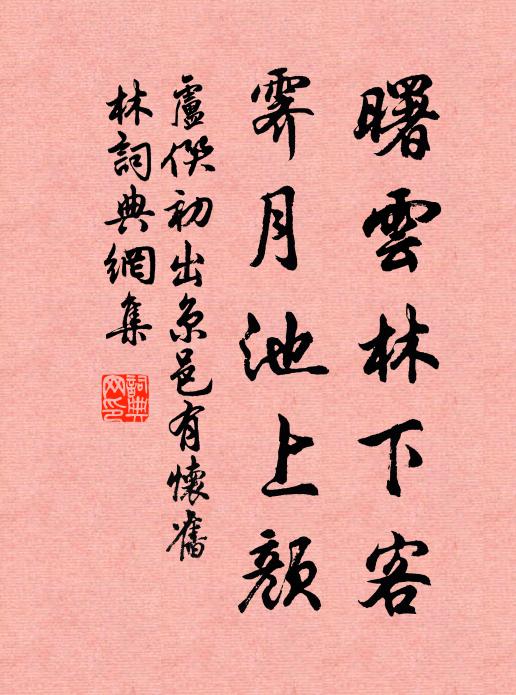 曙雲林下客
霽月池上顏
盧僎初出京邑有懷舊
林詞典網集
詞典
網印